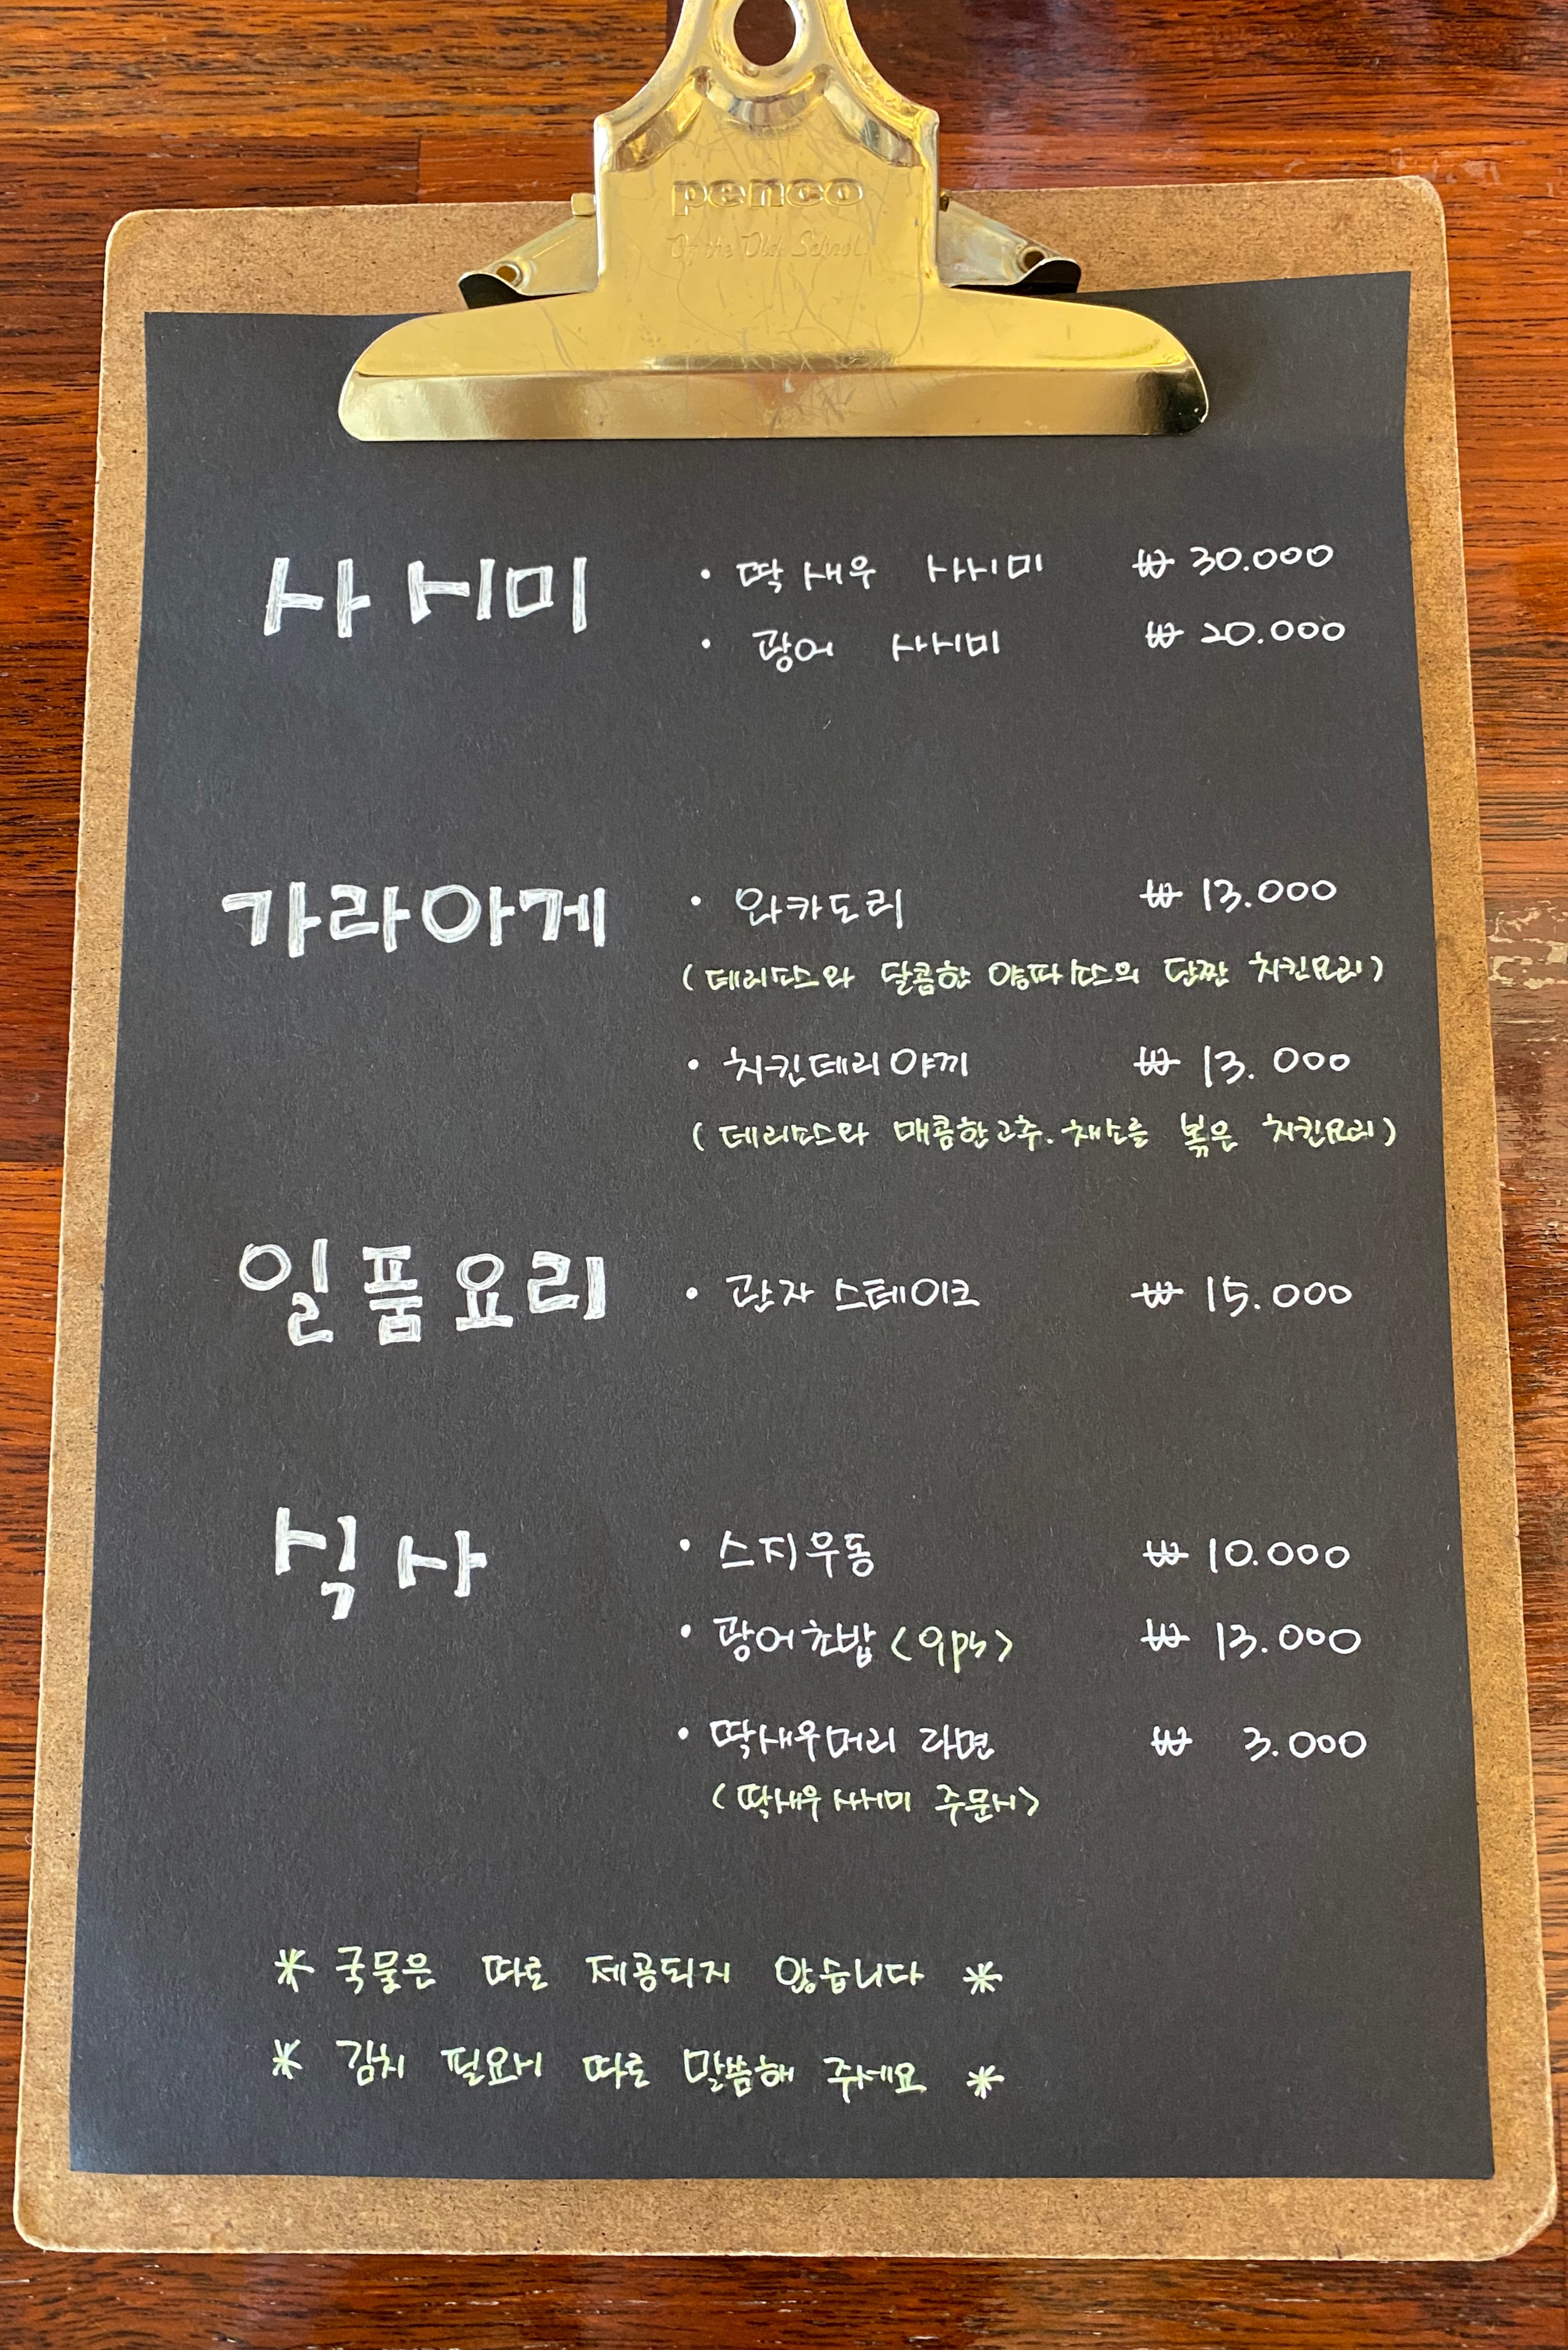 penco
Of the Old School
사시미
• 딱새우 사시미 ₩ 30.000
• 광어 사시미 ₩ 20.000
가라아게
• 와카도리 ₩ 13.000
(데리쏘스와 달콤한 양파쏘스의 단짠 치킨요리)
• 치킨데리야끼 ₩ 13.000
(데리쏘스와 매콤한고추.채소를 볶은 치킨요리)
일품요리
• 관자 스테이크 ₩ 15.000
식사
• 스지우동 ₩ 10.000
• 광어초밥 <9ps> ₩ 13.000
• 딱새우머리 라면 ₩ 3.000
<딱새우사시미 주문시>
* 국물은 따로 제공되지 않습니다 *
* 김치 필요시 따로 말씀해 주세요 *